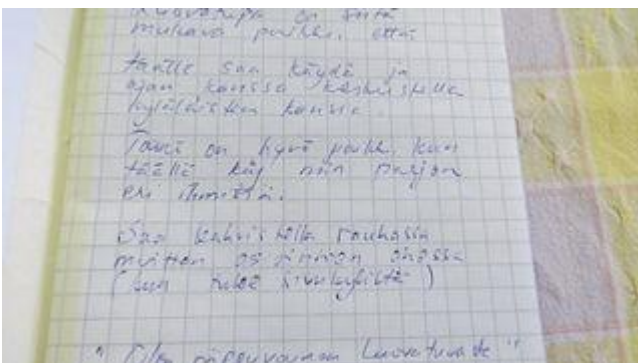 on siitä
mukava paikka, että
täälle saa käydä ja
ajan kanssa keskustella
kyläläisten kanssa.
Tämä on hyvä paikka, kun
täällä käy niin paljon
eri ihmisiä.
Saa kahvistella rauhassa
muitten asioinnin ohessa
(kun tulee sivukyliltä)